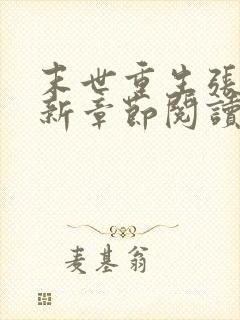 末世重生張
新章節閱讀
麦基翁